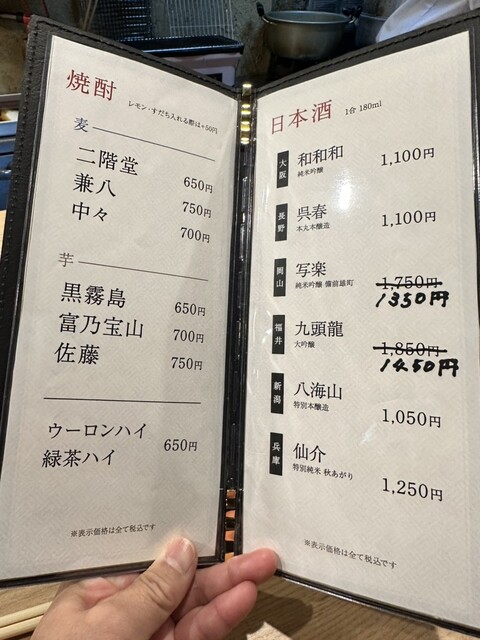 焼酎
レモン・すだち入れる際は+50円
麦
二階堂 650円
兼八 750円
中々 700円
芋
黒霧島 650円
富乃宝山 700円
佐藤 750円
ウーロンハイ
緑茶ハイ 650円
※表示価格は全て税込です
日本酒 1合 180ml
大阪 和和和 1,100円
純米吟醸
長野 呉春 1,100円
本丸本醸造
岡山 写楽 1,750円
純米吟醸 備前雄町 1350円
福井 九頭龍 1,850円
大吟醸 1450円
新潟 八海山 1,050円
特別本醸造
兵庫 仙介 1,250円
特別純米 秋あがり
※表示価格は全て税込です